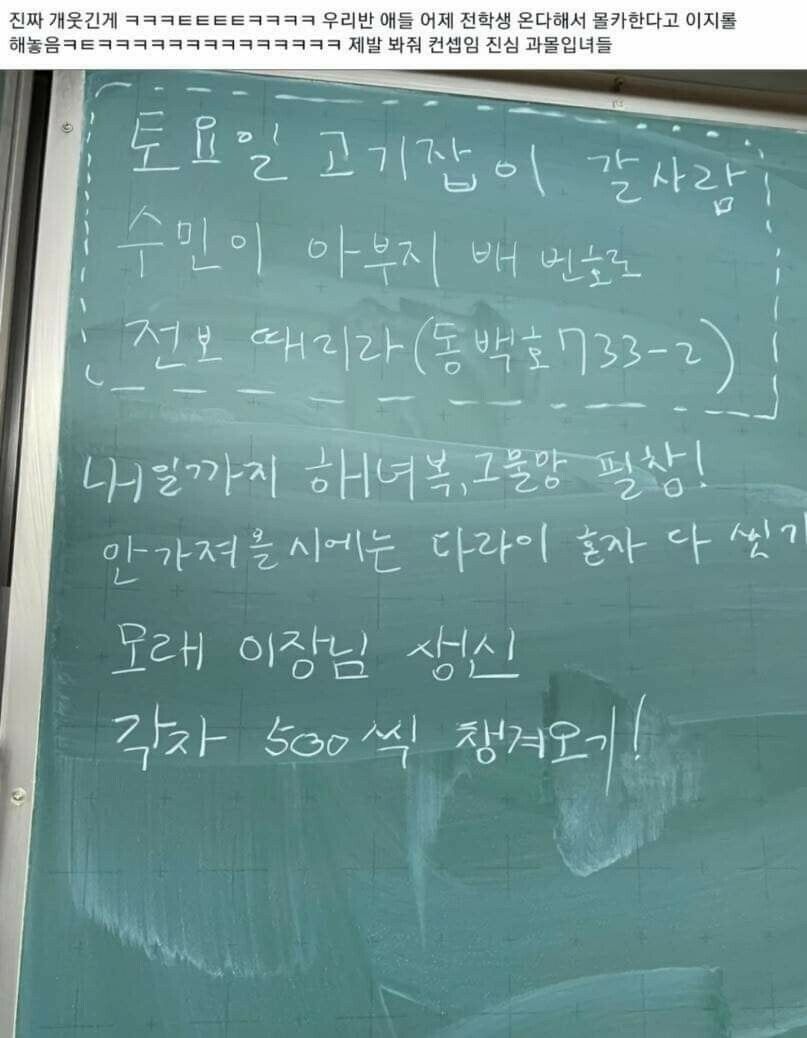 진짜 개웃긴게 ㅋㅋㅋㅌㅌㅌㅌㅋㅋㅋㅋ 우리반 애들 어제 전학생 온다해서 몰카한다고 이지롤
해놓음ㅋㅌㅋㅋㅋㅋㅋㅋㅋㅋㅋㅋㅋㅋㅋㅋㅋ 제발 봐줘 컨셉임 진심 과몰입녀들
토요일 고기잡이 갈사람
수민이 아부지 배 번호로
전보 때리라(동백호733-2)
내일까지 해녀복,그물망 필참!
안가져올시에는 다라이 혼자 다 씻기
모레 이장님 생신
각자 500씩 챙겨오기!